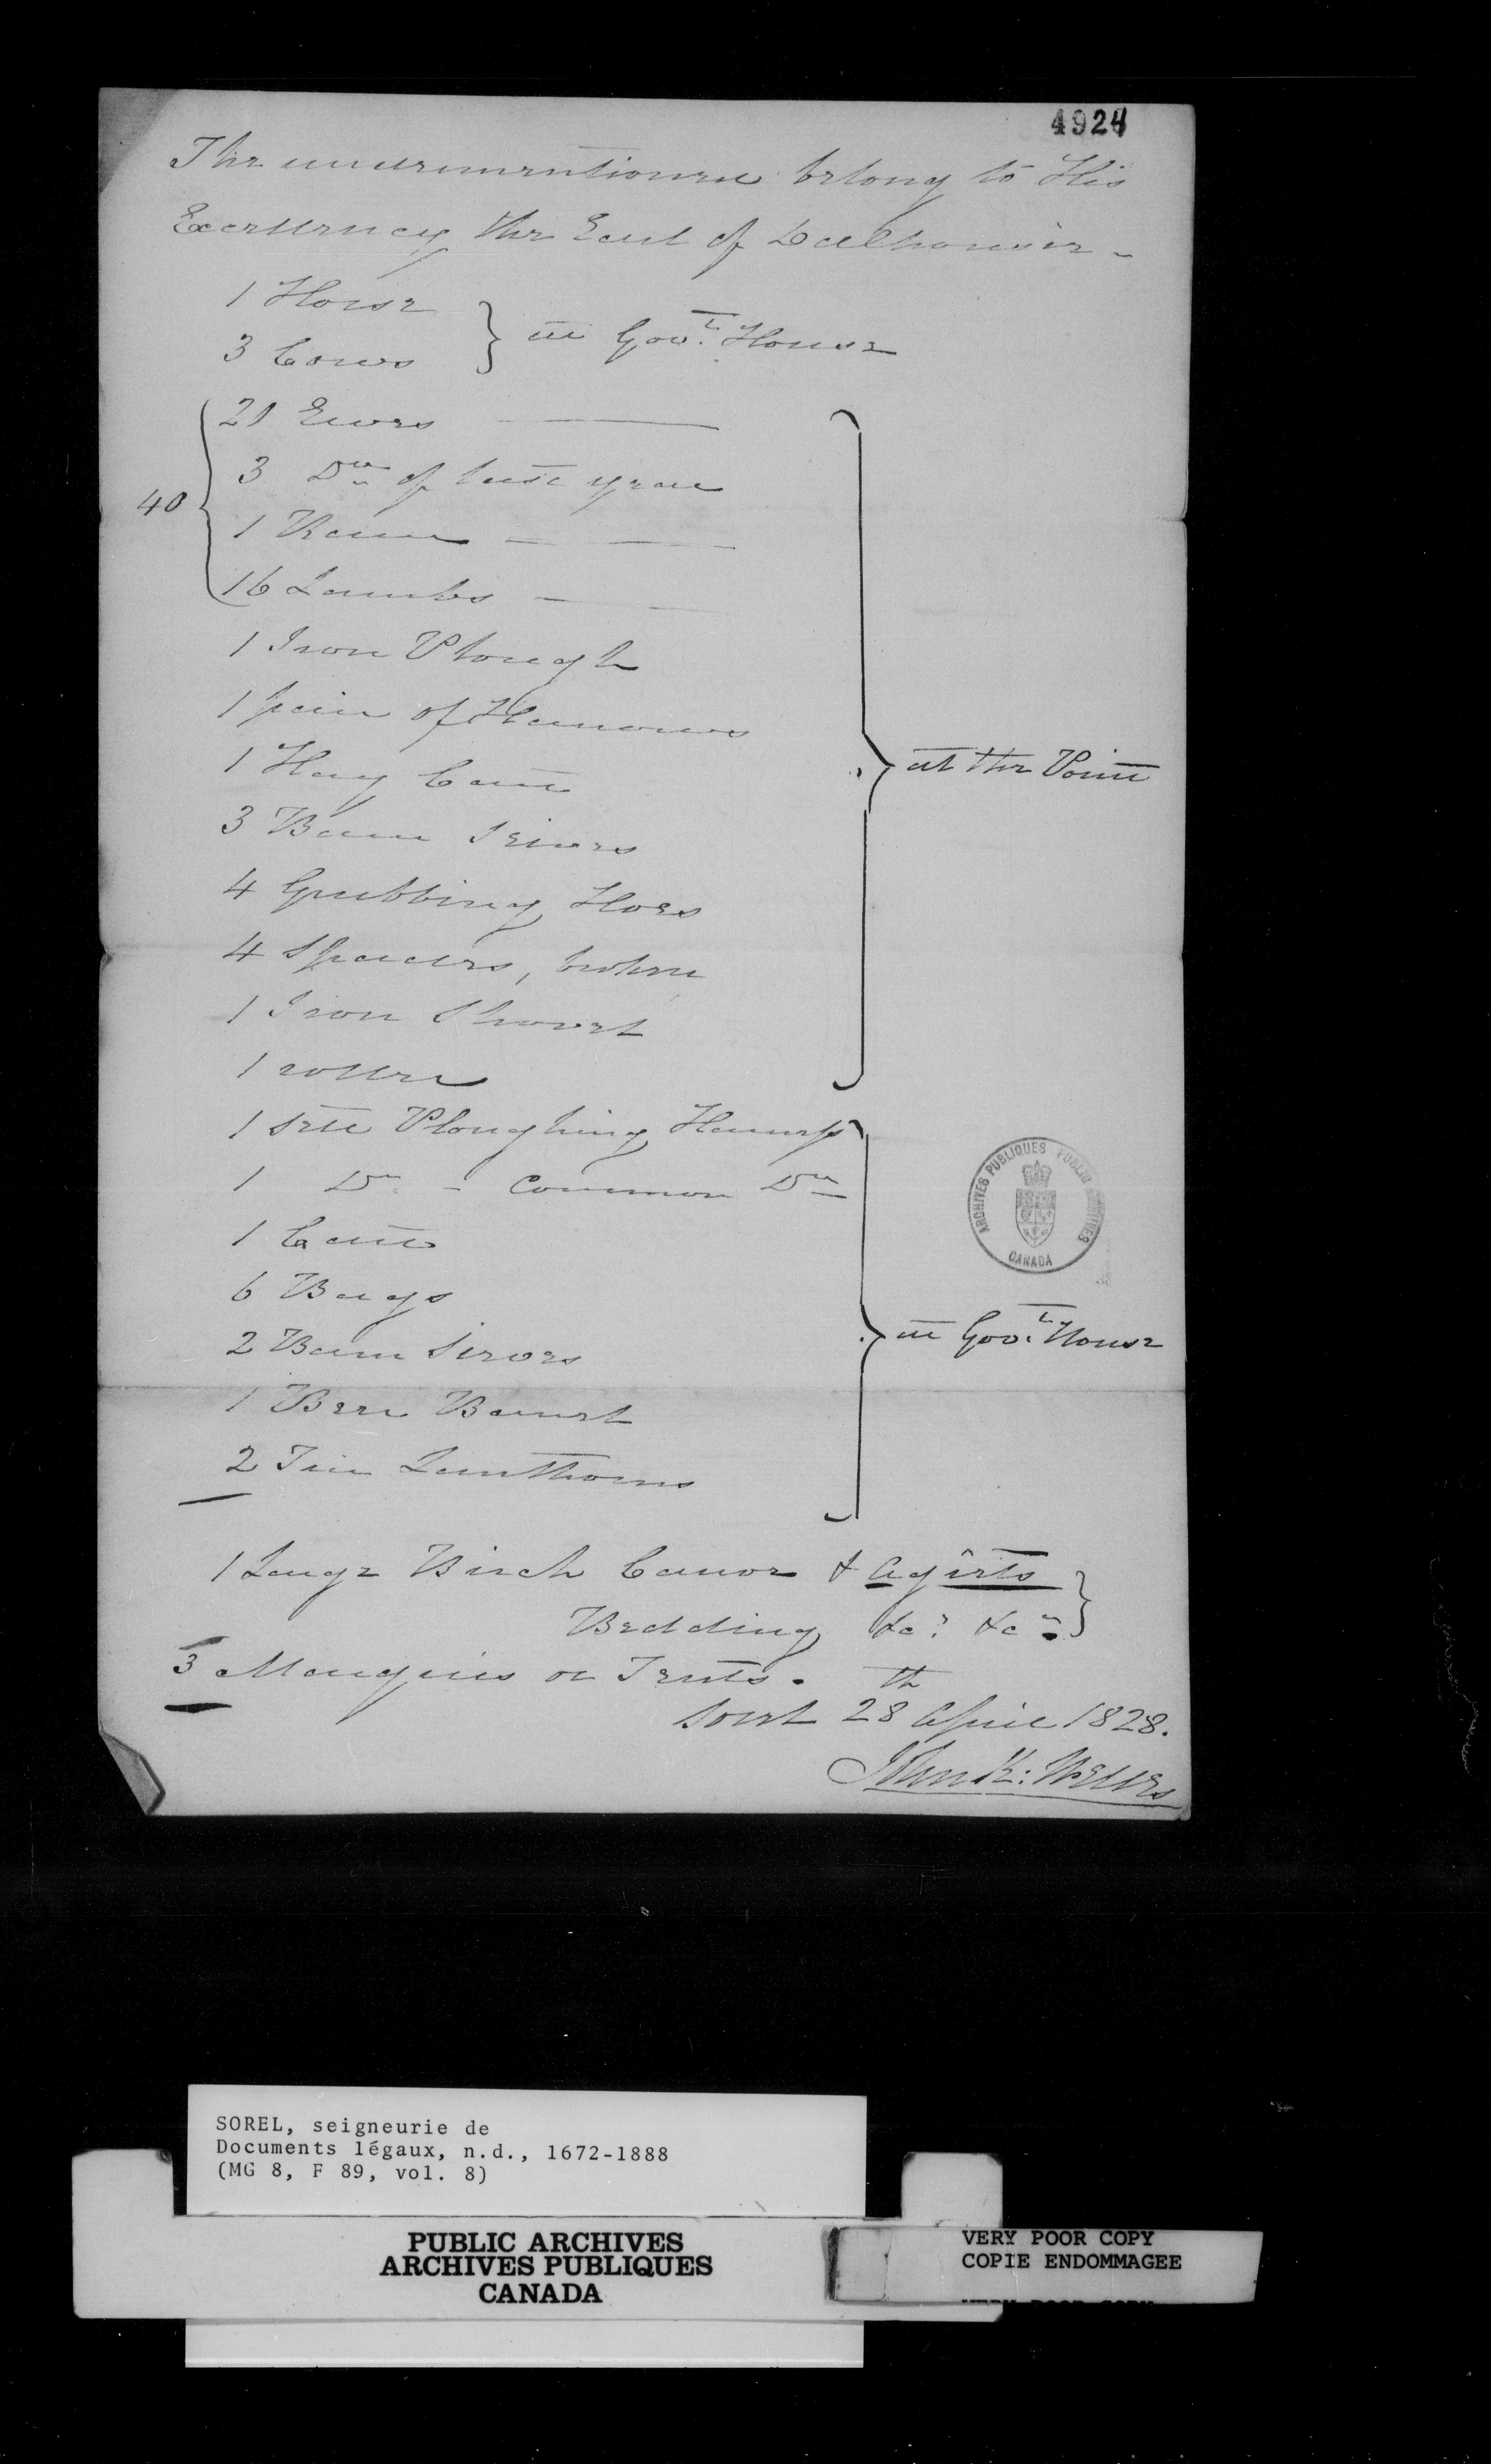 4924
The undermentioned belong to His
Excellency the Earl of Dalhousie -
1 Horse
3 Cows } at Gov.t House
21 Ewes
3 Do of last year
40
1 Ram
16 Lambs
1 Iron Plough
1 pair of Harrows
1 Hay Cart
at the Point
3 Barn Sieves
4 Grubbing Hoes
4 Spades, broken
1 Iron Shovel
1 roller
1 sett Ploughing Harness
1 Do - Common Do
1 Cart
6 Bags
2 Barn Sieves
at Gov.t House
1 Beer Barrel
2 Tin Lanthorns
1 Large Birch Canoe & Agîets
Bedding &c. &c.
3 Marquis or Tents.
Sorel 28th April 1828.
John K: Welles
ARCHIVES PUBLIQUES PUBLIC ARCHIVES
CANADA
SOREL, seigneurie de
Documents légaux, n.d., 1672-1888
(MG 8, F 89, vol. 8)
PUBLIC ARCHIVES
ARCHIVES PUBLIQUES
CANADA
VERY POOR COPY
COPIE ENDOMMAGEE
VERY POOR COPY